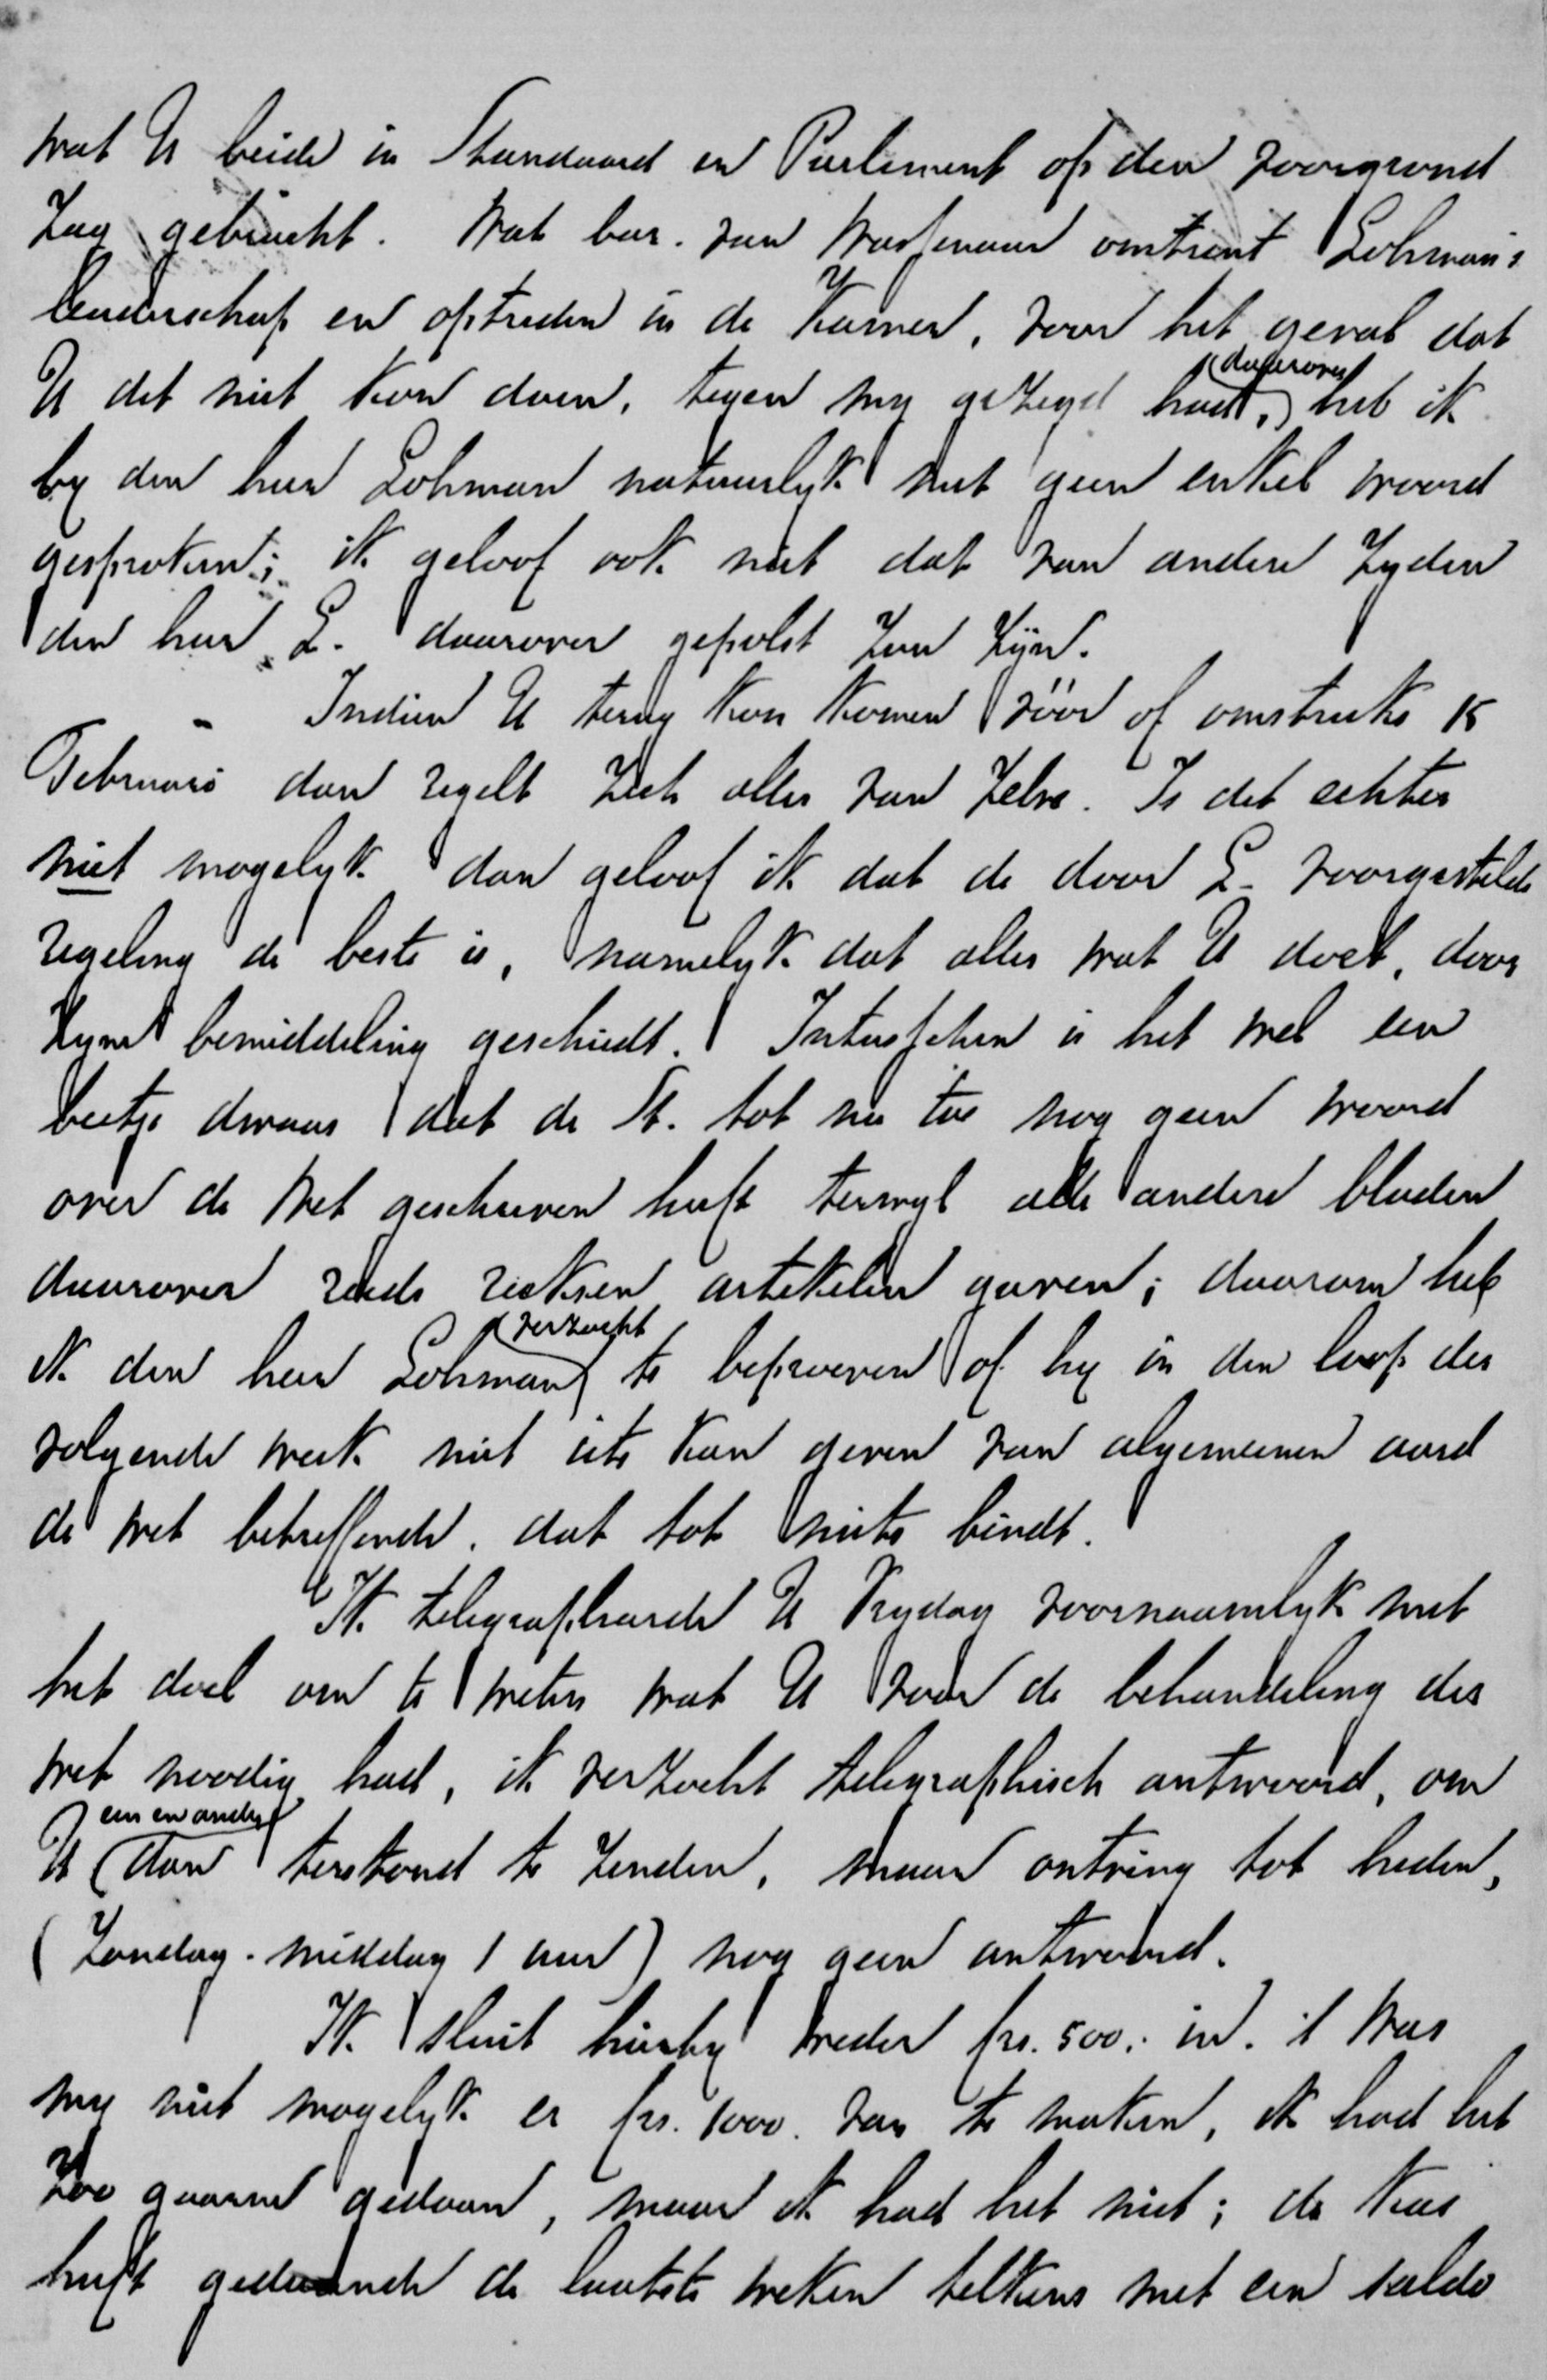 wat U beide in Standaard en Parlement op den voorgrond
zag gebracht. Wat bar. van Wassenaar omtrent Lohman's
leiderschap en optreden in de Kamer, voor het geval dat
U dit niet kon doen, tegen my gezegd had, daarover heb ik
by den heer Lohman natuurlyk met geen enkel woord
gesproken; ik geloof ook niet dat van andere zyden
den heer L. daarover gepolst zou zyn.
Indien U terug kon komen vóór of omstreeks 15
Februari dan regelt zich alles van zelve. Is dit echter
niet mogelyk dan geloof ik dat de door L. voorgestelde
regeling de beste is, namelyk dat alles wat U doet, door
zyne bemiddeling geschiedt. Intusschen is het wel een
beetje dwaas dat de St. tot nu toe nog geen woord
over de wet geschreven heeft terwyl alle andere bladen
daarover reeds reeksen artikelen gaven; daarom heb
ik den heer Lohman verzocht te beproeven of hy in den loop der
volgende week niet iets kan geven van algemeenen aard
de wet betreffende, dat tot niets bindt.
Ik telegrapheerde U Vrydag voornaamlyk met
het doel om te weten wat U voor de behandeling der
wet noodig had, ik verzocht telegraphisch antwoord, om
U een en ander dan terstond te zenden, maar ontving tot heden,
(Zondag-middag 1 uur) nog geen antwoord.
Ik sluit hierby weder frs. 500.- in. 't Was
my niet mogelyk er frs. 1000. van te maken, ik had het
zoo gaarne gedaan, maar ik had het niet; de Kas
heeft gedurende de laatste weken telkens met een saldo